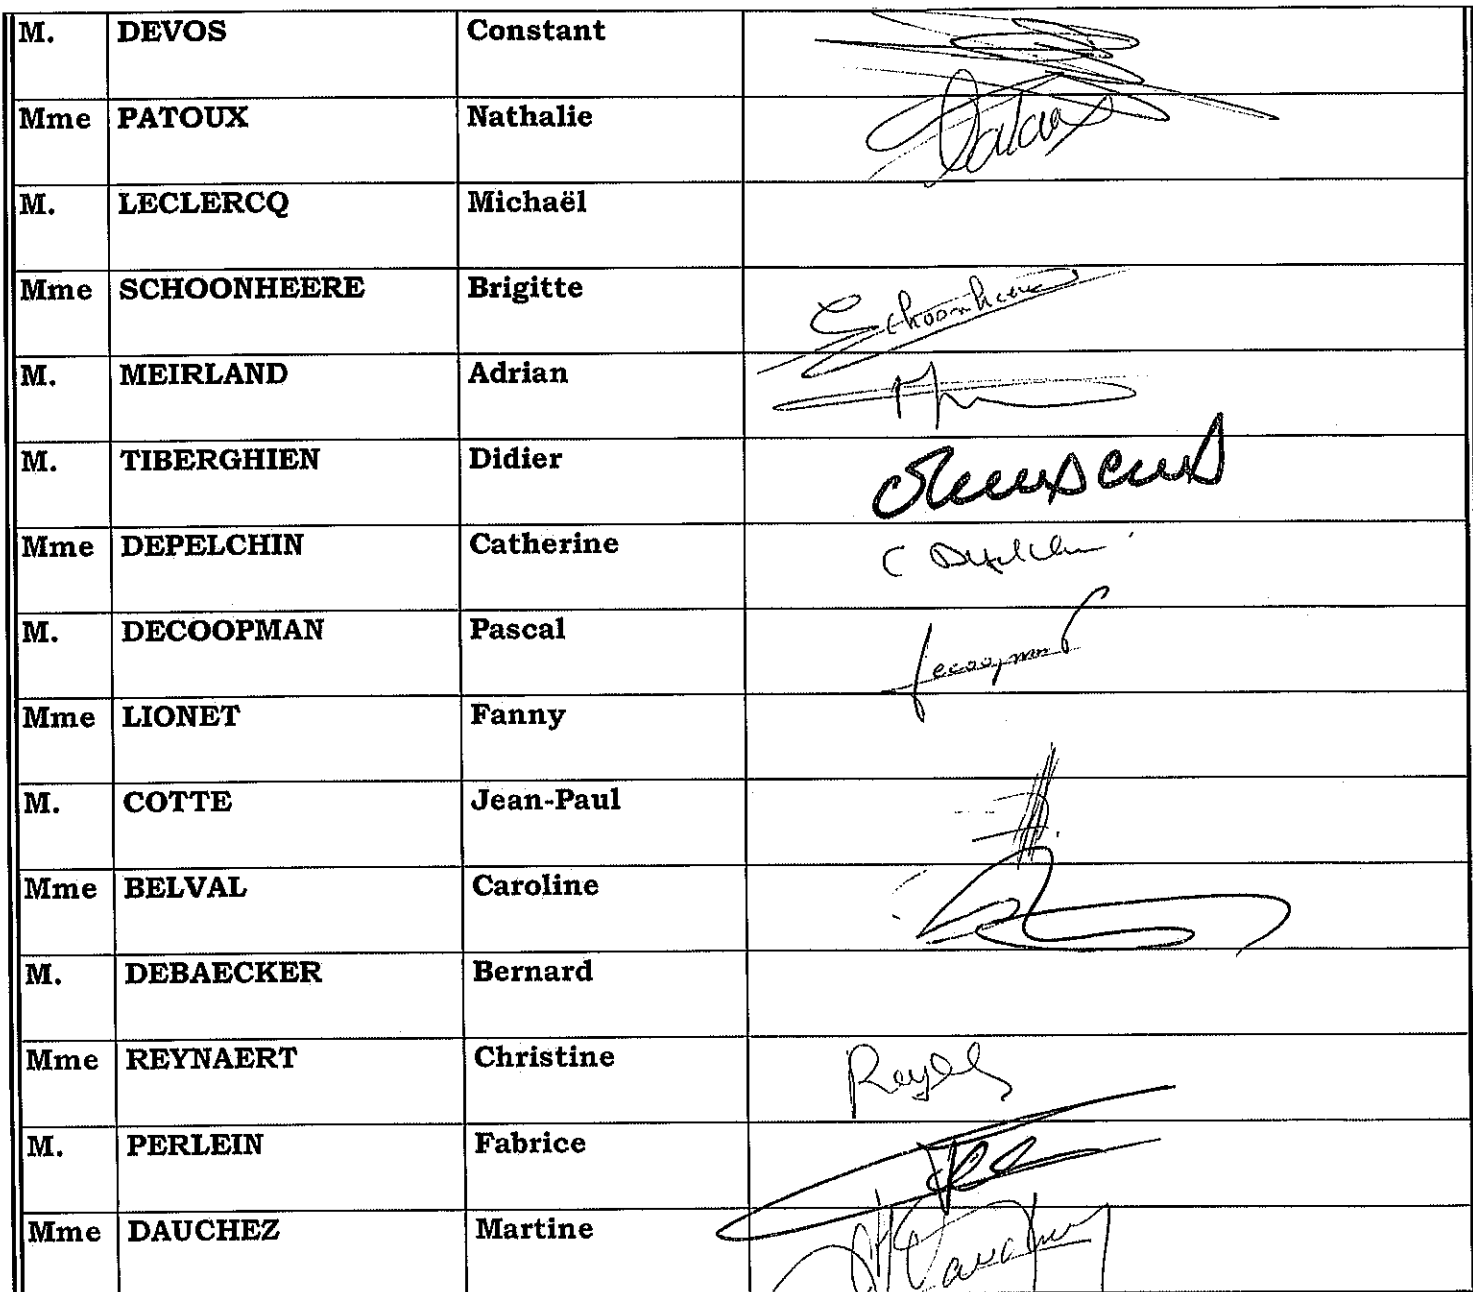 M. DEVOS Constant
Mme PATOUX Nathalie
M. LECLERCQ Michaël
Mme SCHOONHEERE Brigitte Schoonheere
M. MEIRLAND Adrian
M. TIBERGHIEN Didier
Mme DEPELCHIN Catherine C Depelchin
M. DECOOPMAN Pascal
Mme LIONET Fanny
M. COTTE Jean-Paul
Mme BELVAL Caroline
M. DEBAECKER Bernard
Mme REYNAERT Christine
M. PERLEIN Fabrice
Mme DAUCHEZ Martine